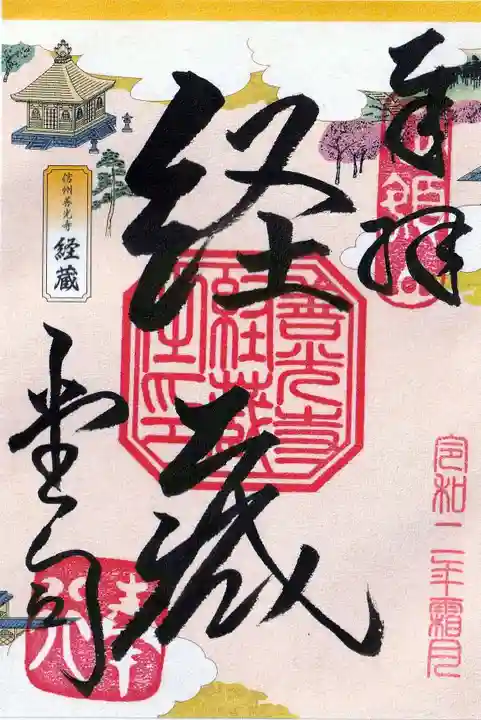 奉拝
令和二年霜月
経蔵
善光寺
経蔵
之印
堂司
信州善光寺
経蔵